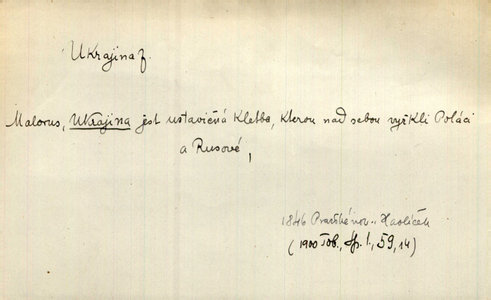 Ukrajina f.
Malorus, Ukrajina jest ustavičná kletba, kterou nad sebou vyřkli Poláci
a Rusové,
1846 Pražské nov. Havlíček
(1900 Tob., Sp. I., 59, 14)